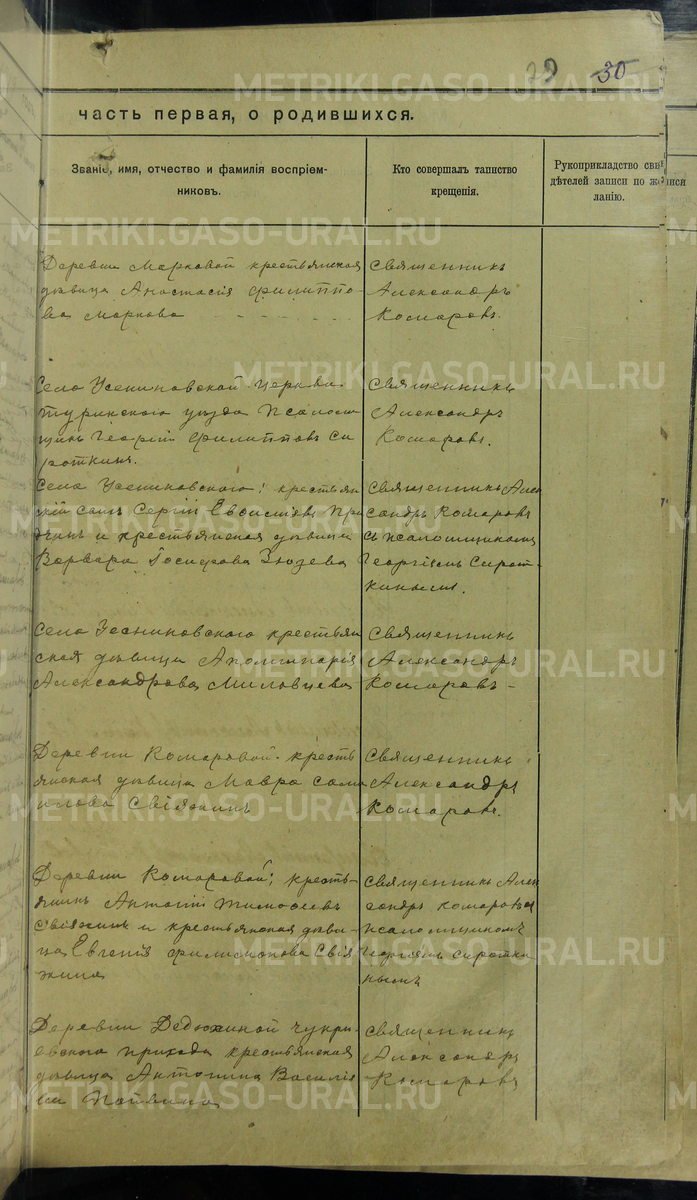 29 30
часть первая, о родившихся.
Званіе, имя, отчество и фамилія воспріем-
никовъ.
Кто совершалъ таинство
крещенія.
Рукоприкладство сви-
дѣтелей записи по же
ланію.
Деревни Марковой крестьянская
дѣвица Анастасія Филиппо-
ва Маркова
Священникъ
Александръ
Комаровъ.
Села Усениновской церкви
Туринскаго уѣзда Псалом
щикъ Георгій Филипповъ Си
роткинъ.
Священникъ
Александръ
Комаровъ.
Села Усениновского: крестьян
скій сынъ Сергій
и крестьянская дѣвица
Варвара Іосифова Зюзева
Священникъ Алек
сандръ Комаровъ
съ псаломщикомъ
Георгіемъ Сирот-
кинымъ.
Села Усениновского крестьян
ская дѣвица Аполинарія
Александрова Миловцева
Священникъ
Александръ
Комаровъ-
Деревни Комаровой крест
янская дѣвица Мавра Сам
илова Свіяжинъ
Священникъ
Александръ
Комаровъ.
Деревни Комаровой; кресть-
янинъ Антоній Тимофеевъ
Свіяжинъ и крестьянская дѣви-
ца Евгенія Филимонова Свія
жина
Священникъ Алек
сандръ Комаровъ съ
псаломщикомъ
Георгіемъ Сиротки
нымъ
Деревни Дедюхиной Чукре
евского прихода крестьянская
дѣвица Антонина Василі
ева
Священникъ
Александръ
Комаровъ
METRIKI.GASO-URAL.RU